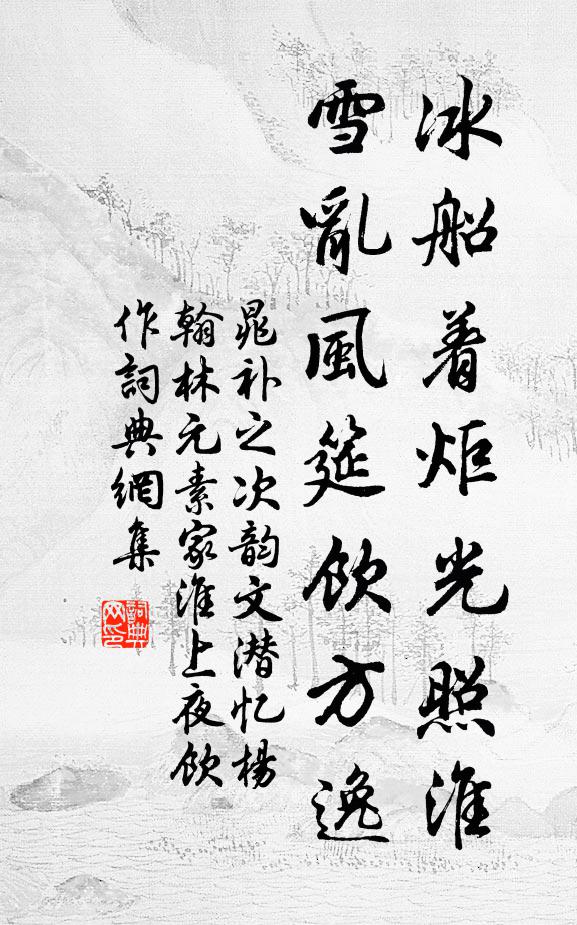 冰船着炬光照淮
雪亂風筵飲方逸
晁补之次韵文潜忆楊
翰林元素家淮上夜飲
作詞典網集
詞典
网印